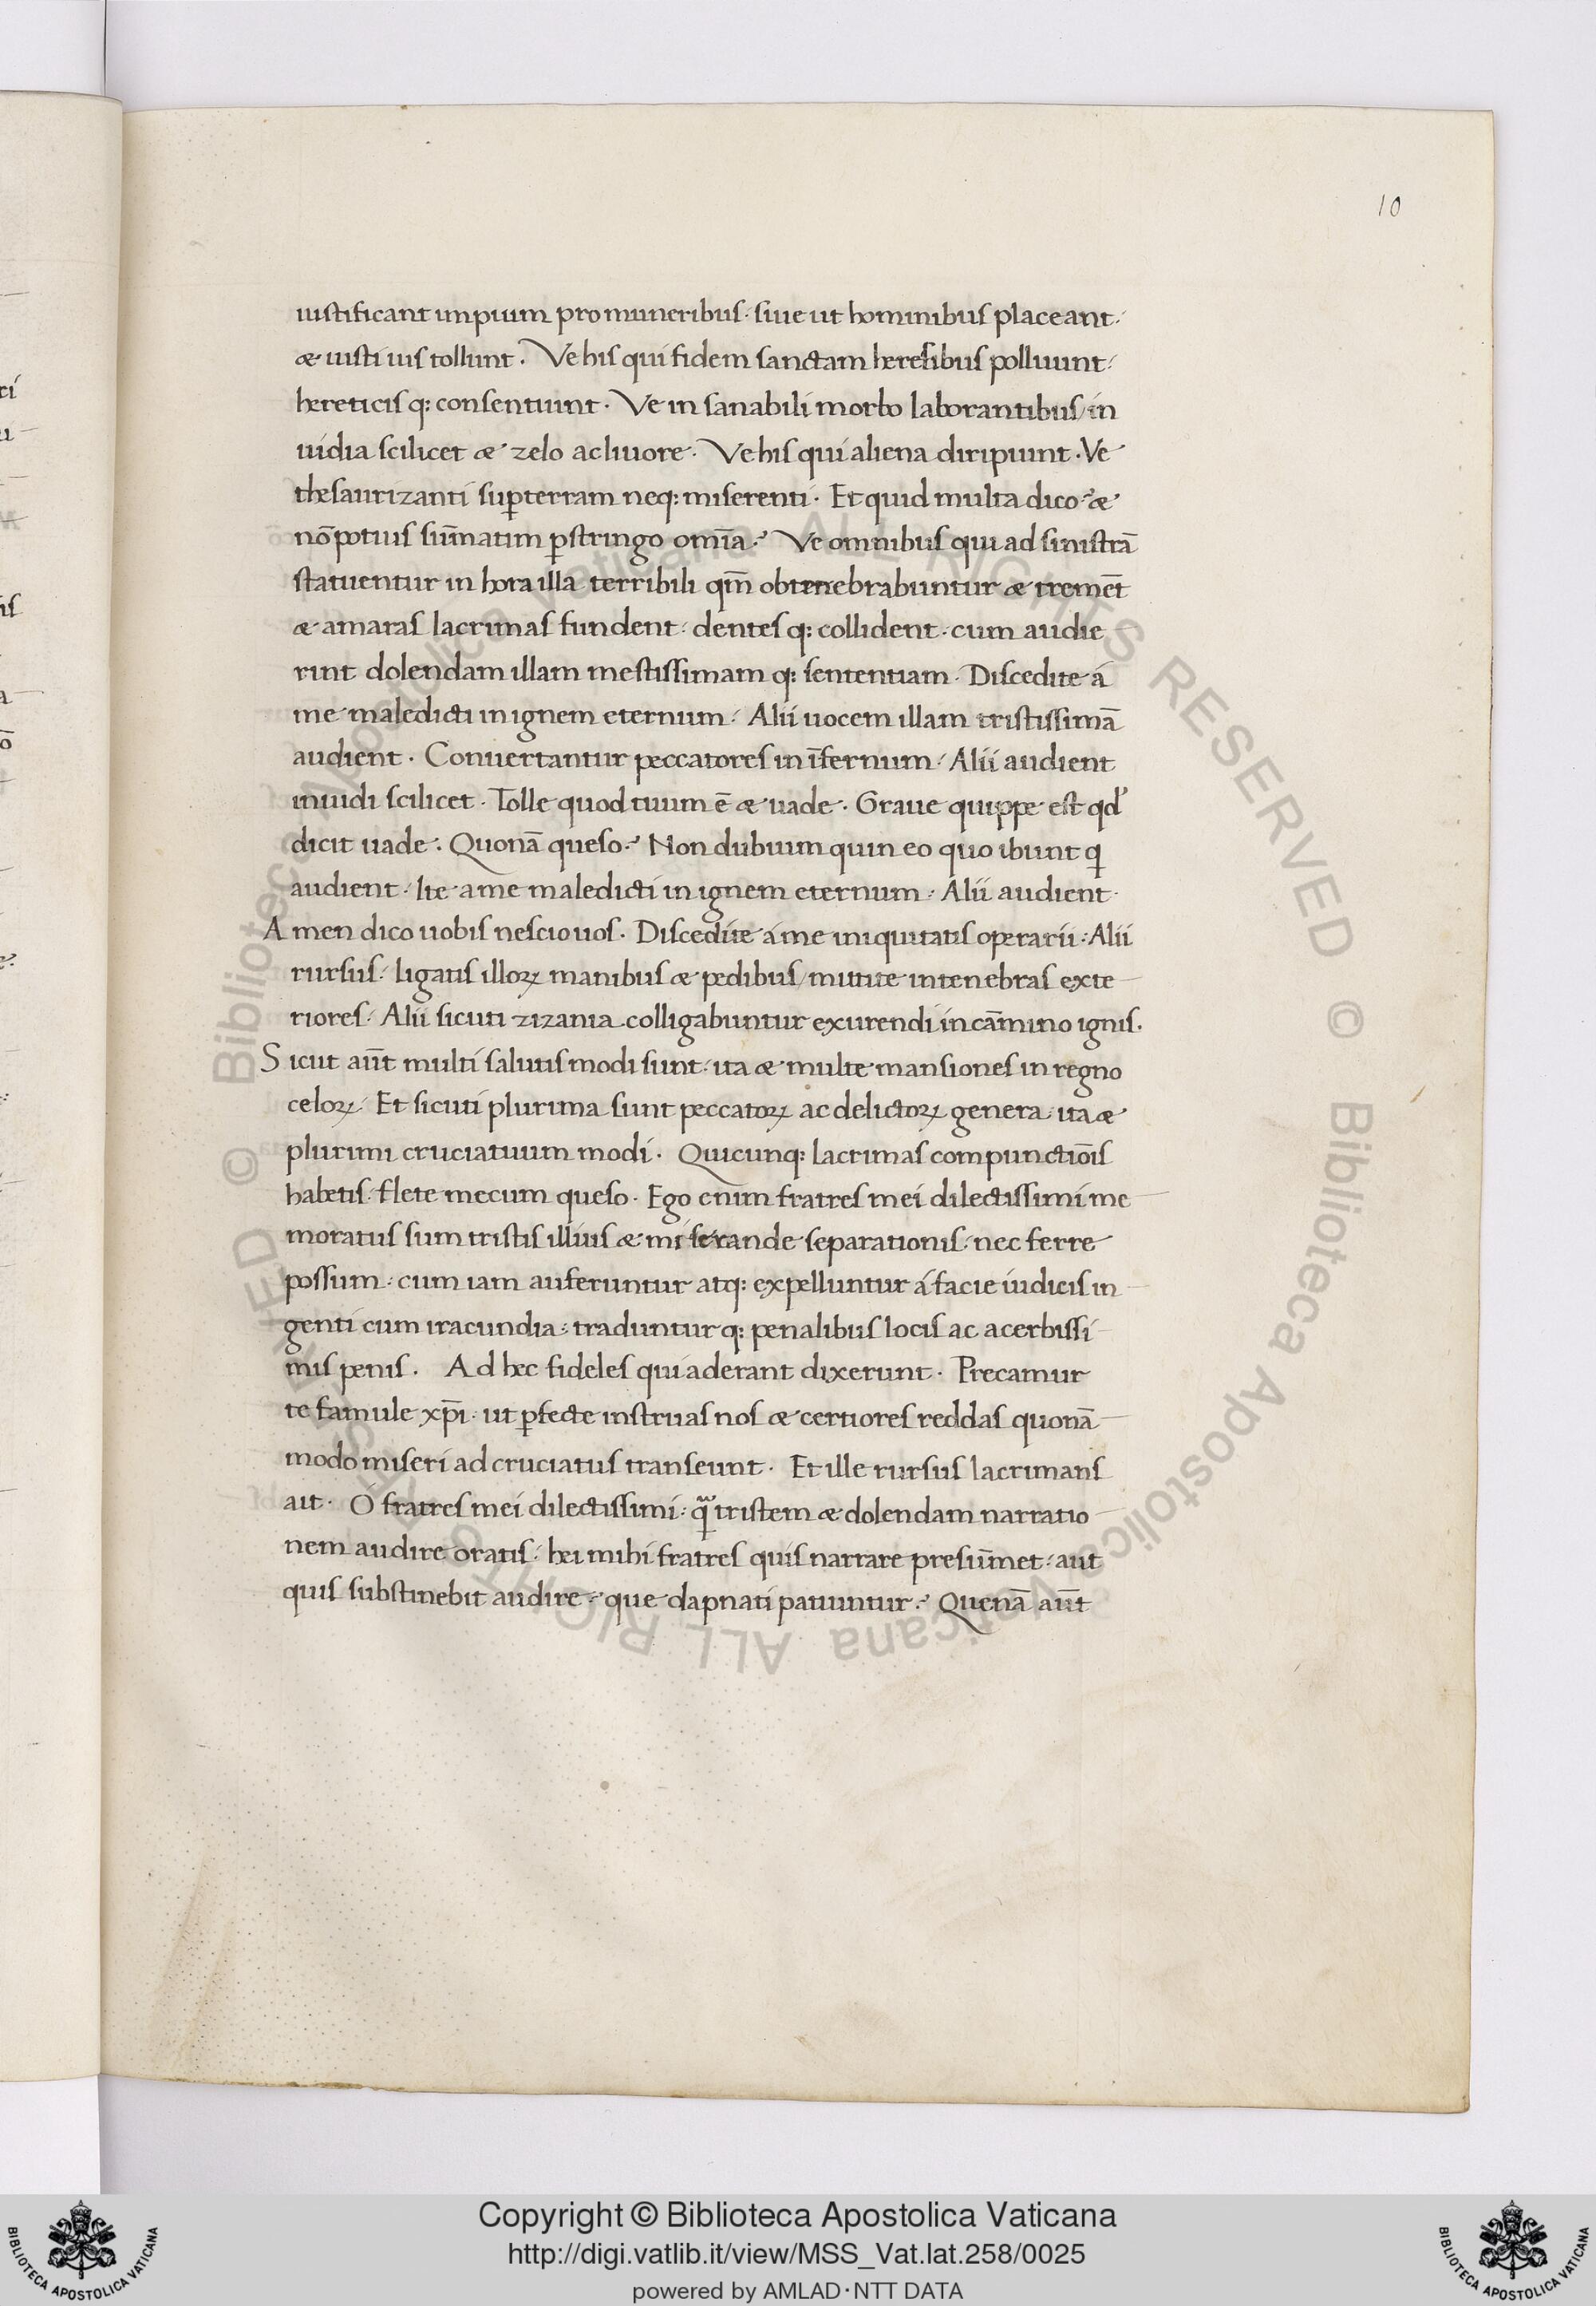 10
iustificant impium pro muneribus· siue ut hominibus placeant·
æ iusti ius tollunt. Ve his qui fidem sanctam heresibus polluunt·
hereticis q: consentiunt· Ve in sanabili morbo laborantibus/ in
uidia scilicet æ zelo ac liuore· Ve his qui aliena diripiunt· Ve
thesaurizanti sup̄ terram neq: miserenti· Et quid multa dico·? æ
nō potius sum̄atim p̄stringo om̄ia·? Ve omnibus qui ad sinistrā
statuentur in hora illa terribili qm̄ obtenebrabuntur æ tremēt
æ amaras lacrimas fundent· dentes q: collident· cum audie
rint dolendam illam mestissimam q: sententiam· Discedite á
me maledicti in ignem eternum· Alii uocem illam tristissimā
audient· Conuertantur peccatores in īfernum· Alii audient
inuidi scilicet· Tolle quod tuum ē æ uade· Graue quippe est qd'
dicit uade· Quonā queso·? Non dubium quin eo quo ibunt q
audient· Ite a me maledicti in ignem eternum· Alii audient·
Amen dico uobis nescio uos· Discedite á me iniquitatis operarii· Alii
rursus· ligatis illoꝝ manibus æ pedibus/ mittite in tenebras exte
riores· Alii sicuti zizania colligabuntur exurendi in cam̄ino ignis.
Sicut aūt multi salutis modi sunt· ita æ multe mansiones in regno
celoꝝ· Et sicuti plurima sunt peccatoꝝ ac delictoꝝ genera· ita æ
plurimi cruciatuum modi· Quicunq: lacrimas compunctiōis
habetis· flete mecum queso· Ego enim fratres mei dilectissimi me
moratus sum tristis illius æ miserande separationis· nec ferre
possum· cum iam auferuntur atq: expelluntur á facie iudicis in
genti cum iracundia· traduntur q: penalibus locis ac acerbissi
mis penis. Ad hec fideles qui aderant dixerunt· Precamur
te famule xp̄i· ut p̄fecte instruas nos æ certiores reddas quonā
modo miseri ad cruciatus transeunt· Et ille rursus lacrimans
ait· O fratres mei dilectissimi· q̄ tristem æ dolendam narratio
nem audire oratis· hei mihi fratres quis narrare presum̄et· aut
quis substinebit audire·? que dapnati patiuntur·? Quenā aūt
Copyright © Biblioteca Apostolica Vaticana
http://digi.vatlib.it/view/MSS_Vat.lat.258/0025
powered by AMLAD·NTT DATA
BIBLIOTECA APOSTOLICA VATICANA
BIBLIOTECA APOSTOLICA VATICANA